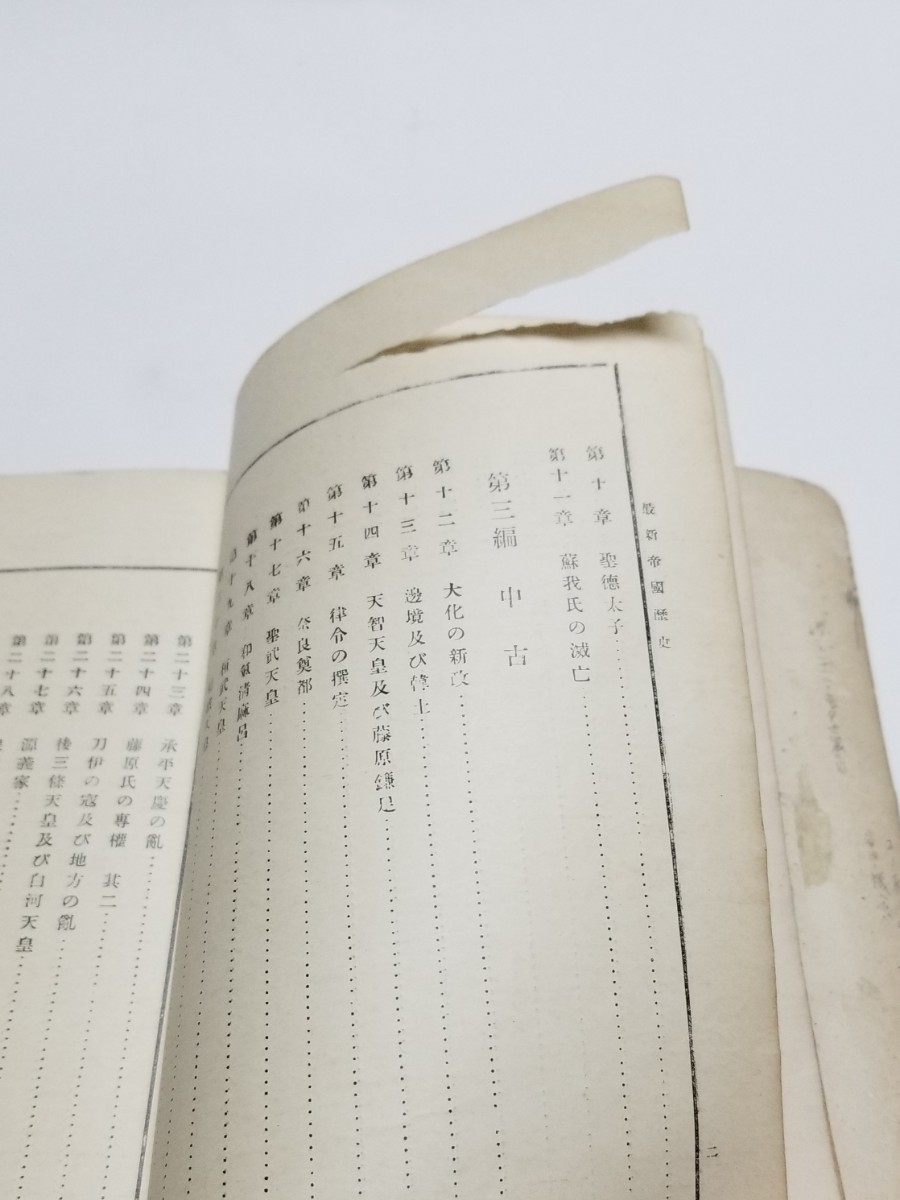 最新帝國歷史
第十章 聖德太子
第十一章 蘇我氏の滅亡
第三編 中古
第十二章 大化の新政
第十三章 邊境及び韓土
第十四章 天智天皇及び藤原鎌足
第十五章 律令の撰定
第十六章 奈良奠都
第十七章 聖武天皇
第十八章 和氣淸麻呂
第十九章 桓武天皇
二
第二十三章 承平天慶の亂
第二十四章 藤原氏の專權 其二
第二十五章 刀伊の寇及び地方の亂
第二十六章 後三條天皇及び白河天皇
第二十七章 源義家
第二十八章